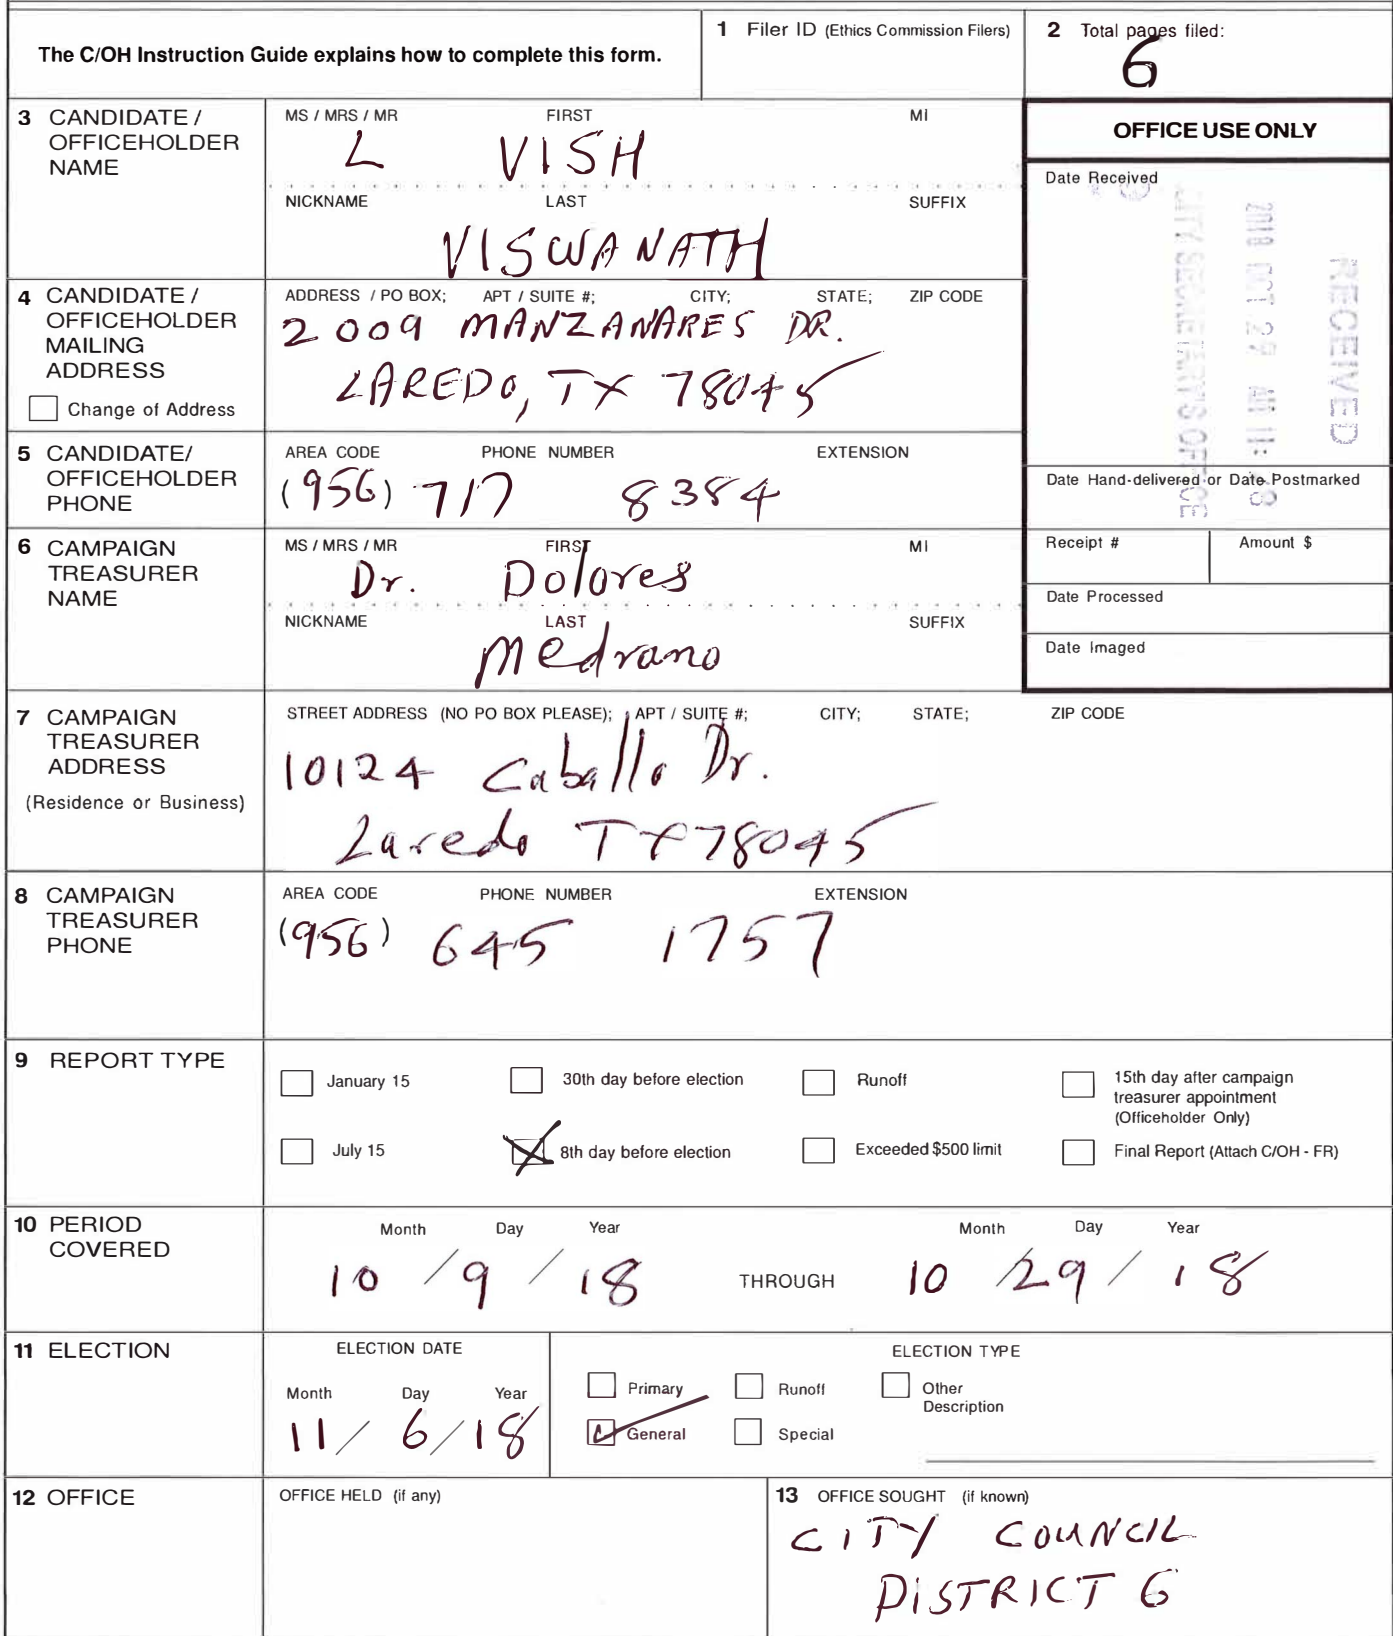 The C/OH Instruction Guide explains how to complete this form.
1 Filer ID (Ethics Commission Filers)
2 Total pages filed:
6
3 CANDIDATE / OFFICEHOLDER NAME
MS / MRS / MR FIRST MI
L VISH
NICKNAME LAST SUFFIX
VISWANATH
OFFICE USE ONLY
Date Received
RECEIVED
2018 OCT 29 AM 11: 48
CITY SECRETARY'S OFFICE
4 CANDIDATE / OFFICEHOLDER MAILING ADDRESS
Change of Address
ADDRESS / PO BOX; APT / SUITE #; CITY; STATE; ZIP CODE
2009 MANZANARES DR.
LAREDO, TX 78045
5 CANDIDATE/ OFFICEHOLDER PHONE
AREA CODE PHONE NUMBER EXTENSION
(956) 717 8384
Date Hand-delivered or Date Postmarked
6 CAMPAIGN TREASURER NAME
MS / MRS / MR FIRST MI
Dr. Dolores
NICKNAME LAST SUFFIX
Medrano
Receipt # Amount $
Date Processed
Date Imaged
7 CAMPAIGN TREASURER ADDRESS
(Residence or Business)
STREET ADDRESS (NO PO BOX PLEASE); APT / SUITE #; CITY; STATE; ZIP CODE
10124 Caballo Dr.
Laredo TX 78045
8 CAMPAIGN TREASURER PHONE
AREA CODE PHONE NUMBER EXTENSION
(956) 645 1757
9 REPORT TYPE
January 15 30th day before election Runoff 15th day after campaign treasurer appointment (Officeholder Only)
July 15 8th day before election Exceeded $500 limit Final Report (Attach C/OH - FR)
10 PERIOD COVERED
Month Day Year Month Day Year
10 / 9 / 18 THROUGH 10 / 29 / 18
11 ELECTION
ELECTION DATE
Month Day Year
11 / 6 / 18
ELECTION TYPE
Primary Runoff Other Description
General Special
12 OFFICE
OFFICE HELD (if any)
13 OFFICE SOUGHT (if known)
CITY COUNCIL
DISTRICT 6